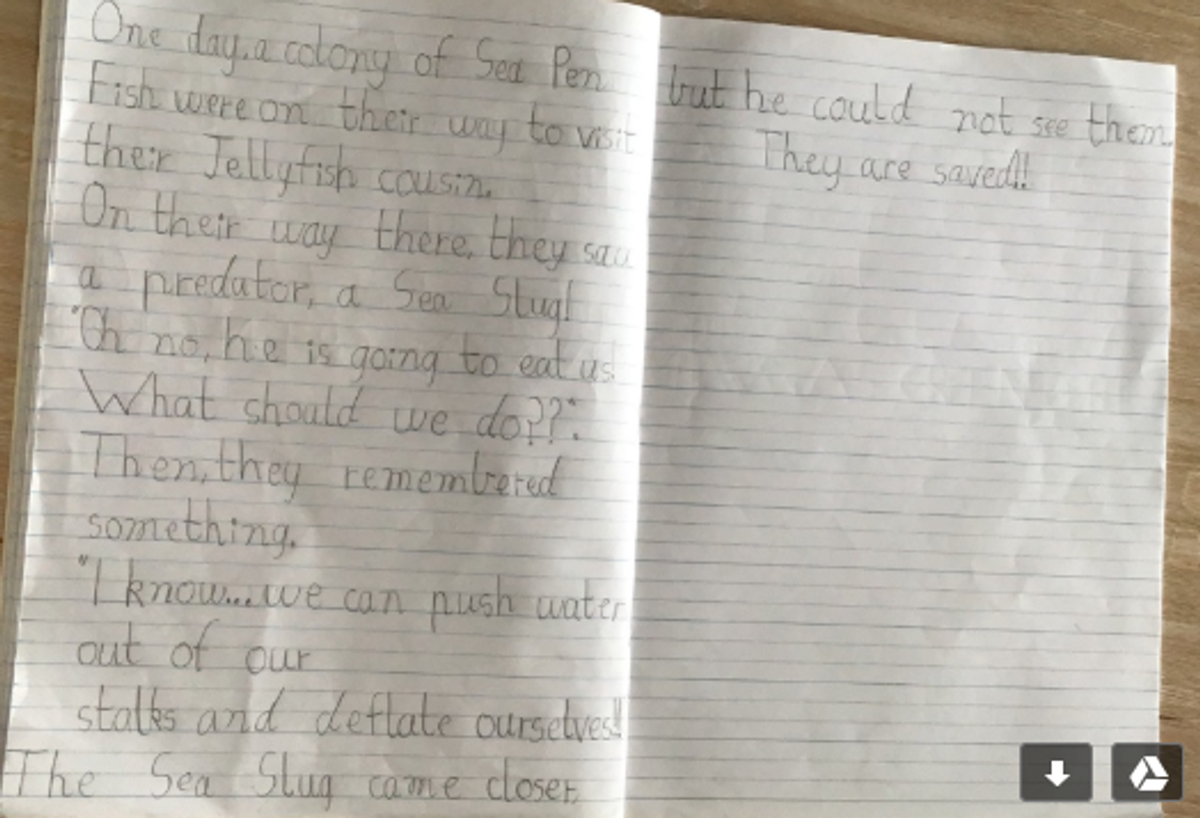 One day, a colony of Sea Pen
Fish were on their way to visit
their Jellyfish cousin.
On their way there, they saw
a predator, a Sea Slug!
"Oh no, he is going to eat us!
What should we do??".
Then, they remembered
something.
"I know...we can push water
out of our
stalks and deflate ourselves!!
The Sea Slug came closer,
but he could not see them.
They are saved!!